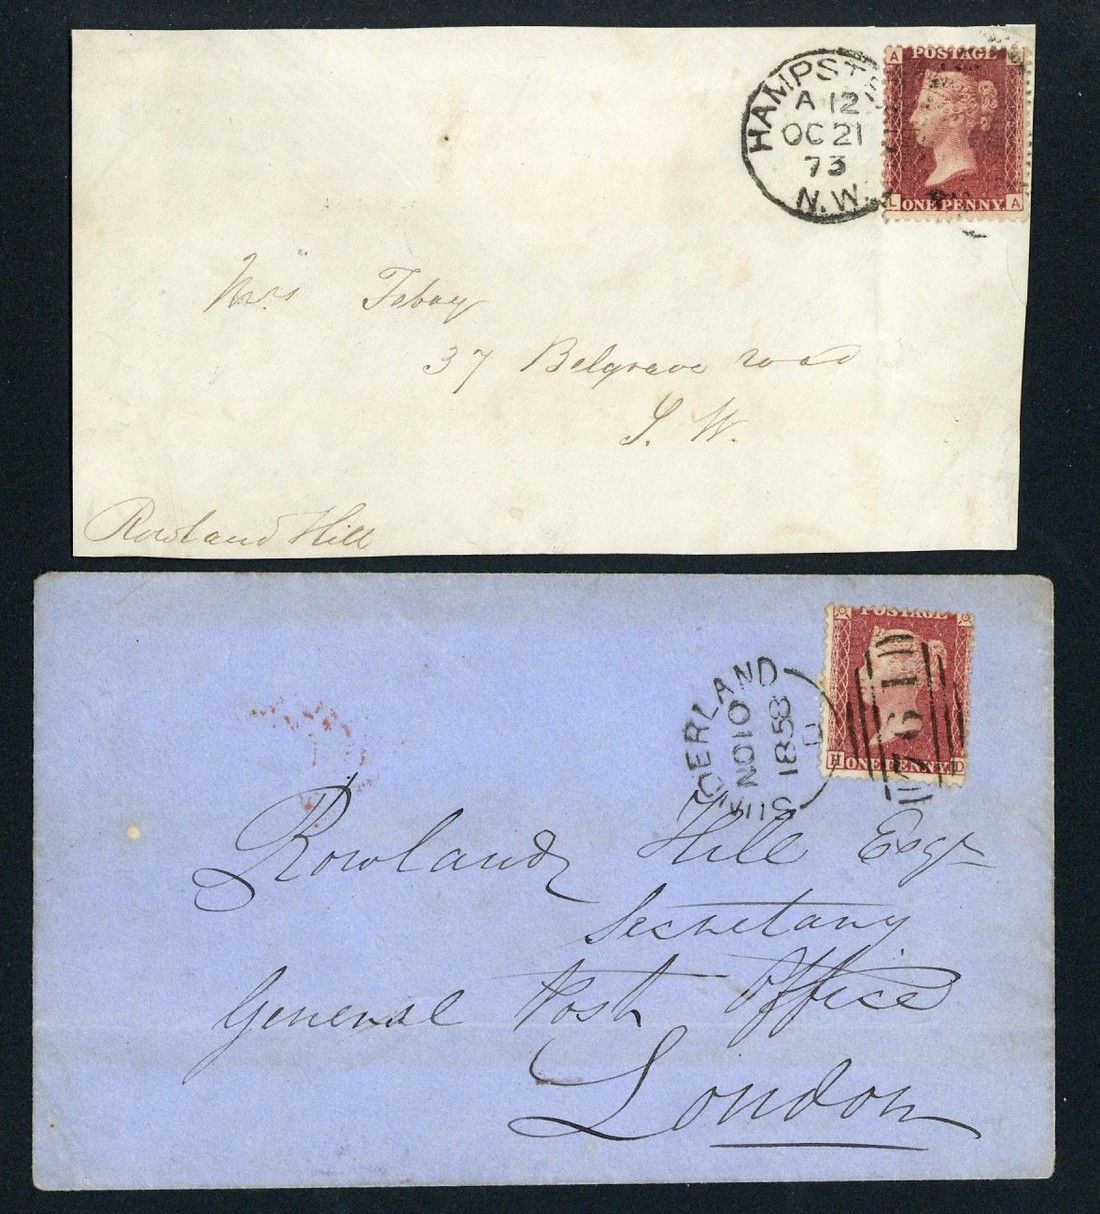 HAMPST
A 12
OC 21
73
N.W.
A
POSTAGE
L
ONE PENNY
A
Mrs Tebay
37 Belgrave road
S. W.
Rowland Hill
SUNDERLAND
NO 10
1858
D
POSTAGE
761
H
ONE PENNY
D
Rowland Hill Esqr
Secretary
General Post Office
London